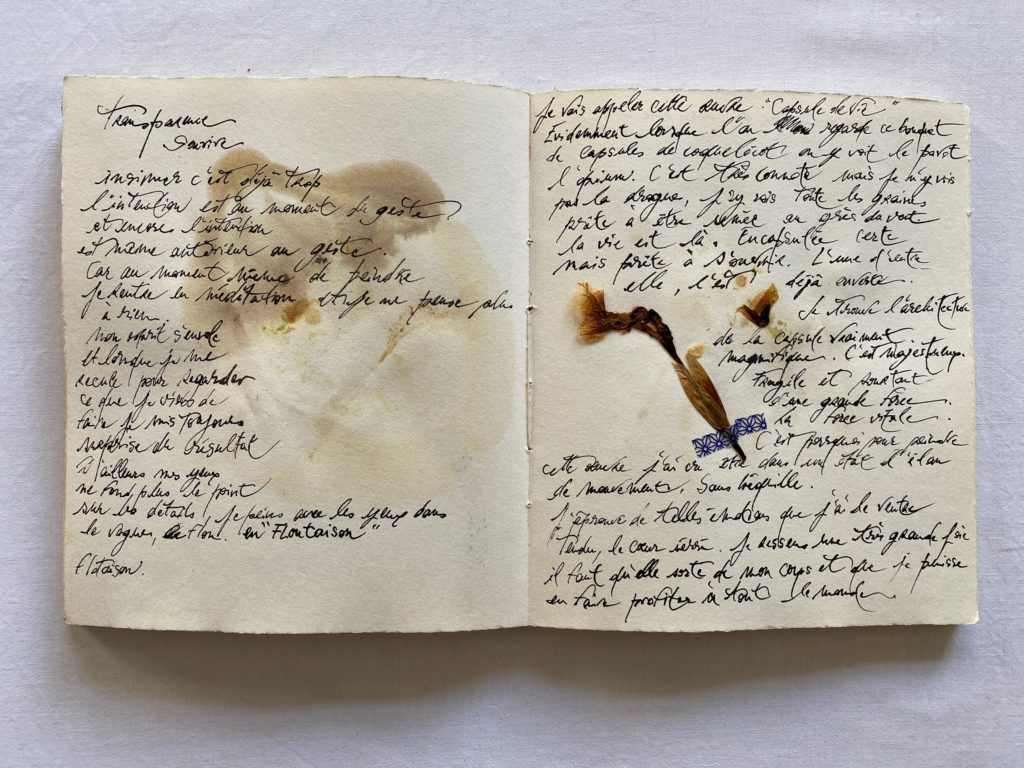 Transparence
Sourire
insinuer c'est déjà trop
l'intention est au moment du geste.
et encore l'intention
est même antérieur au geste.
Car au moment même de peindre
je rentre en méditation et je ne pense plus
a rien.
mon esprit s'envole
et lorsque je me
recule pour regarder
ce que je viens de
faire je suis toujours
surprise du résultat
D'ailleurs mes yeux
ne font plus le point
sur les détails, je peins avec les yeux dans
le vague, le flou. en "Floutaison"
flotaison.
je vais appeler cette œuvre "Capsule de vie"
Evidemment lorsque l'on regarde ce bouquet
de capsules de coquelicot on y voit le pavot
l'opium. C'est très connoté mais je n'y vois
pas la drogue, j'y vois toute les graines
prête à être semée au grès du vent
la vie est là. Encapsulée certe
mais prête à s'ouvrir. L'une d'entre
elle, l'est déjà ouverte.
Je trouve l'architecture
de la capsule vraiment
magnifique. C'est majestueux.
Fragile et pourtant
d'une grande force.
la force vitale.
C'est pourquoi pour peindre
cette œuvre j'ai du être dans un état d'élan
de mouvement, sans béquille.
J'éprouve de telles émotions que j'ai le ventre
tendu, le cœur serein. je ressens une très grande joie
il faut qu'elle sorte de mon corps et que je puisse
en faire profiter à tout le monde.